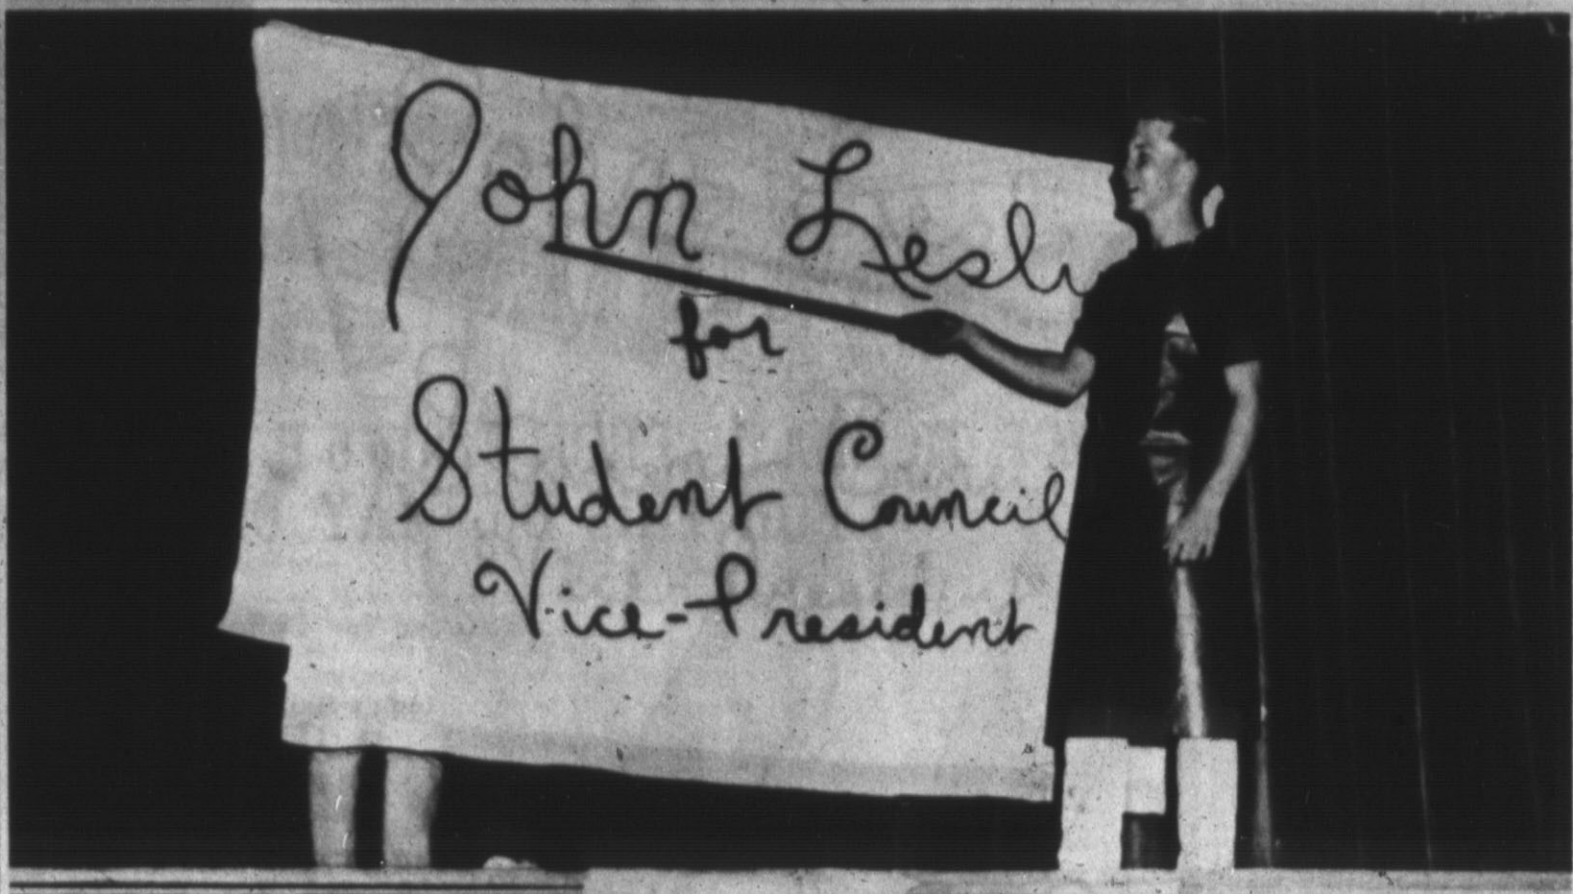 John Lesli
for
Student Council
Vice-President